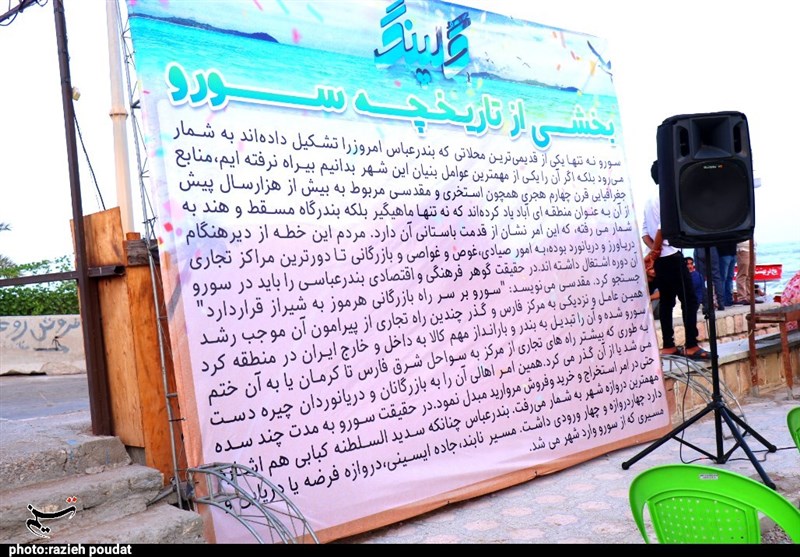 گلرینگ
بخشی از تاریخچه سورو
سورو نه تنها یکی از قدیمی‌ترین محلاتی که بندرعباس امروزرا تشکیل داده‌اند به شمار
می‌رود بلکه اگر آن را یکی از مهمترین عوامل بنیان این شهر بدانیم بیراه نرفته ایم، منابع
جغرافیایی قرن چهارم هجری همچون استخری و مقدسی مربوط به بیش از هزارسال پیش
از آن به عنوان منطقه ای آباد یاد کرده‌اند که نه تنها ماهیگیر بلکه بندرگاه مسقط و هند به
شمار می رفته، که این امر نشان از قدمت باستانی آن دارد. مردم این خطه از دیرهنگام
دریاورز و دریانورد بوده،به امور صیادی،غوص و غواصی و بازرگانی تا دورترین مراکز تجاری
آن دوره اشتغال داشته اند.در حقیقت گوهر فرهنگی و اقتصادی بندرعباسی را باید در سورو
جستجو کرد. مقدسی می‌نویسند: "سورو بر سر راه بازرگانی هرموز به شیراز قراردارد"
همین عامل و نزدیکی به مرکز فارس و گذر چندین راه تجاری از پیرامون آن موجب رشد
سورو شده و آن را تبدیل به بندر و بارانداز مهم کالا به داخل و خارج ایران در منطقه کرد
به طوری که بیشتر راه های تجاری از مرکز به سواحل شرق فارس تا کرمان یا به آن ختم
می شد یا از آن گذر می کرد.همین امر اهالی آن را به بازرگانان و دریانوردان چیره دست
حتی در امر استخراج و خریدوفروش مروارید مبدل نمود.در حقیقت سورو به مدت چند سده
مهمترین دروازه شهر به شمار می‌رفت. بندرعباس چنانکه سدید السلطنه کبابی هم
دارد چهاردروازه و چهار ورودی داشت. مسیر نابند،جاده ایسینی،دروازه فرضه یا دریایی و
مسیری که از سورو وارد شهر می شد.
تسنیم
photo:razieh poudat